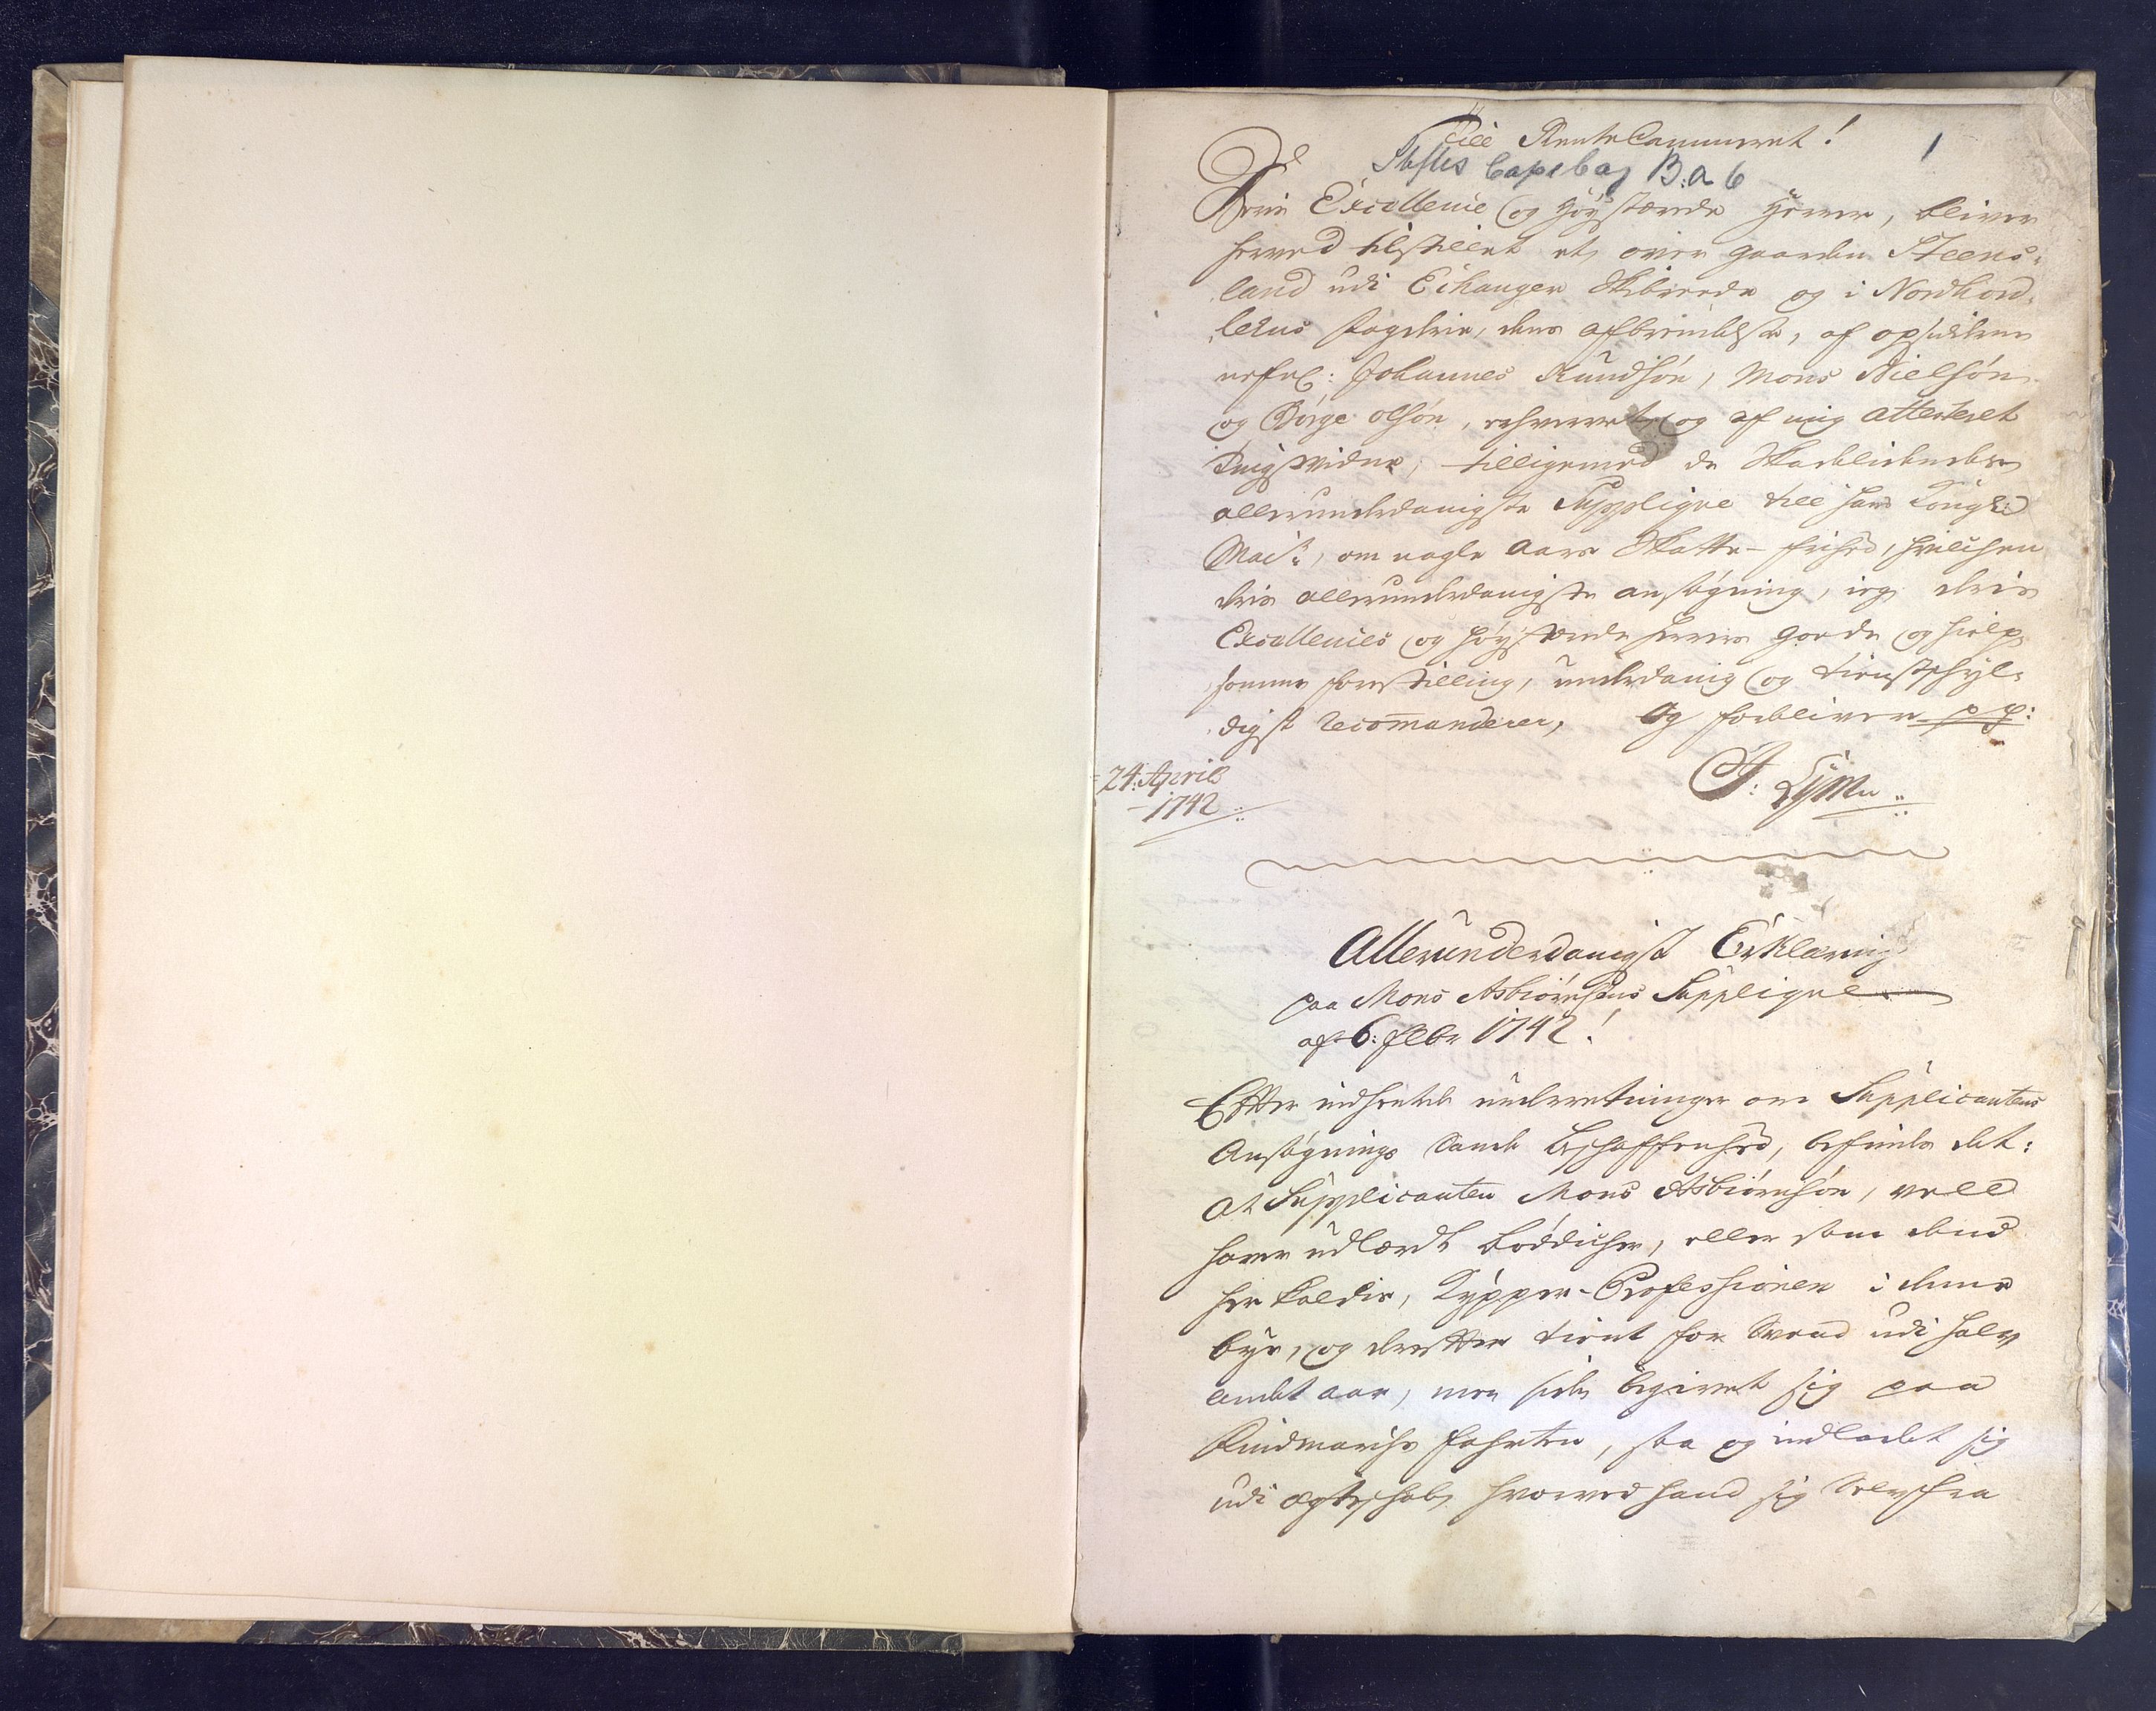 Till RenteCammeret!
1
Stiftets Copibog B: a 6
Deris Excellence og Høystærede Herrer, bliver
herved tilstillet et, over gaarden Steens-
land udi Echanger Skibrede og i Nordhord-
lehns fogderie, dens afbrendelse, af opsidderne
nefnl: Johannes Knudsøn, Mons Nielsøn
og Børge olsøn, erhvervet, og af mig atteteret
Tingsvidne, tilligemed de Skadelidendes
allerunderdanigste Supplique till hans Kongel:
Mait:, om nogle aars Skatte-frihed, hvilchen
deris allerunderdanigste ansøgning, ieg deris
Excellences og høystærede herrers goede og hielp
somme forestilling, underdanig og tienstschyl-
digst recommanderer, Og forbliver pp:
24: April
1742
Allerunderdanigst Erklæring
paa Mons Asbiørnsøns Supplique
af 6: Febr 1742!
Efter indhentede underretninger om Supplicantens
Ansøgnings sande beschaffenhed, befindes det:
At Supplicanten Mons Asbiørnsøn, vell
haver udlærdt Bødicher, eller som dend
her kaldes, Kypper-Professionen i denne
bye, og derefter tient for Svend udi halv
andet aar, men siden begivet sig paa
Findmarchs fahrten, saa og indladet sig
udi ægteschab, hvorved hand sig Selv fra